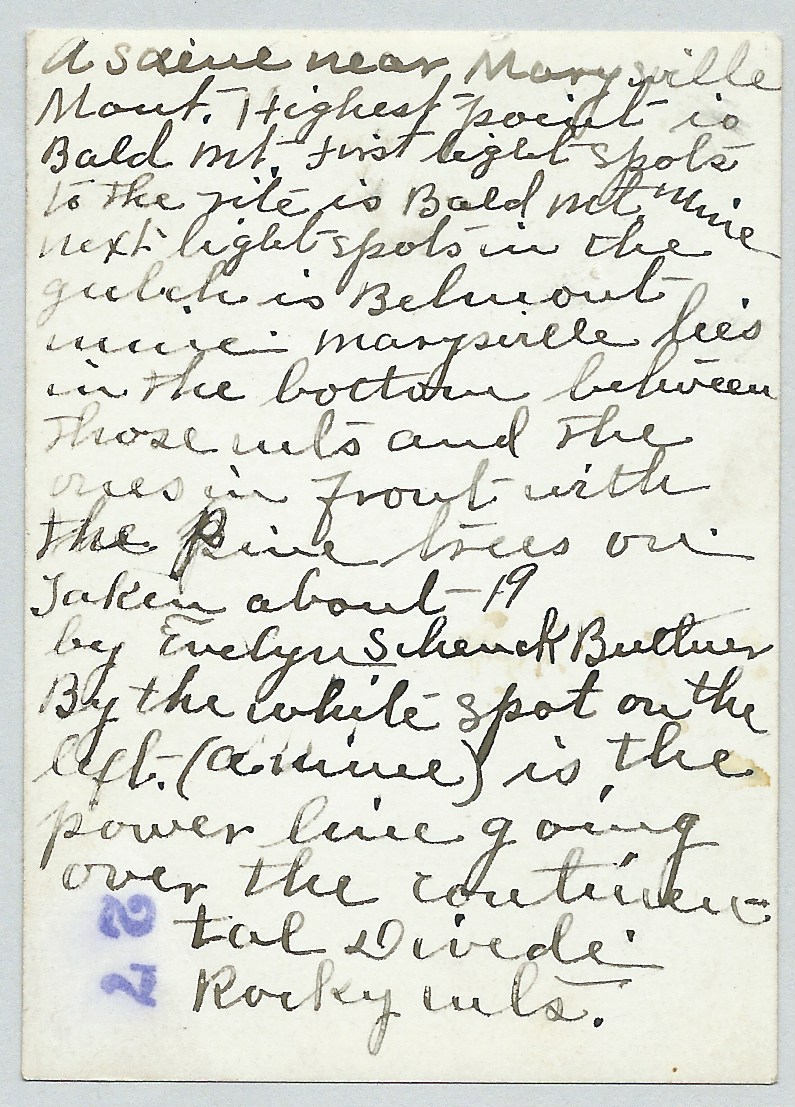 A sceine near Marysville
Mont. Highest point is
Bald Mt. First light spots
to the rite is Bald Mt. Mine
next light spots in the
gulch is Belmont
mine. Marysville lies
in the bottom between
those mts and the
ones in front with
the Pine trees on
Taken about - 19
by Evelyn Schenck Buttner
By the white spot on the
left. (a mine) is the
power line going
over the continen-
tal Divide
Rocky mts.
27